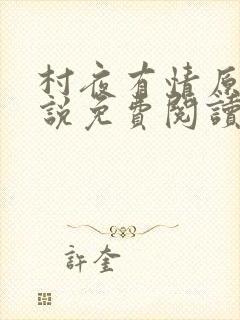 村夜有情原
説免費閱讀
許奎